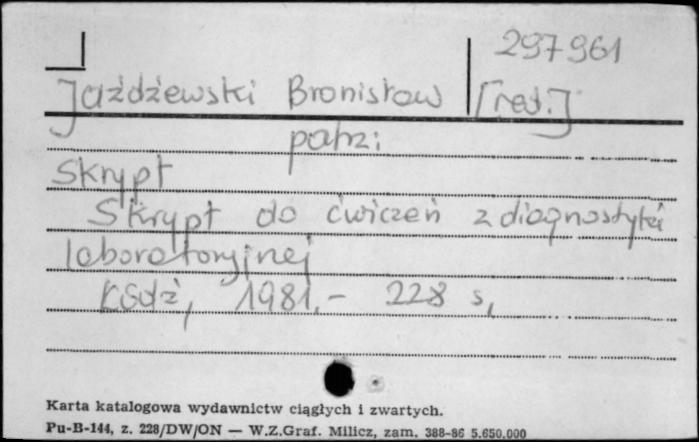 297961
Jażdżewski Bronisław [red.]
patrz:
Skrypt
Skrypt do ćwiczeń z diagnostyki
laboratoryjnej
Łódź, 1981,- 228 s,
Karta katalogowa wydawnictw ciągłych i zwartych.
Pu-B-144, z. 228/DW/ON — W.Z.Graf. Milicz, zam. 388-86 5.650.000